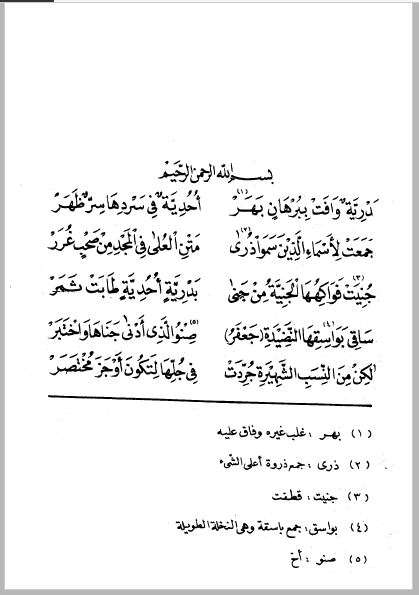 بسم الله الرحمن الرحيم
بَدْرِيَّةٌ وَافَتْ بِبُرْهَانٍ بَهَرْ (١) أُحُدِيَّةٌ فِي سَرْدِهَا سِرٌّ ظَهَرْ
جَمَعَتْ لِأَسْمَاءِ الَّذِينَ سَمَوْا ذُرَى (٢) مَتْنِ الْعُلَى فِي الْمَجْدِ مِنْ صَحْبٍ غُرَرْ
جُنِيَتْ (٣) فَوَاكِهُهَا الْجَنِيَّةُ مِنْ جَنَى بَدْرِيَّةٍ أُحُدِيَّةٍ طَابَتْ ثَمَرْ
سَاقِي بَوَاسِقِهَا (٤) النَّضِيدَةِ (جَعْفَرٌ) صِنْوُ (٥) الَّذِي أَدْنَى جَنَاهَا وَاخْتَبَرْ
لَكِنْ مِنَ النِّسَبِ الشَّهِيرَةِ جُرِّدَتْ فِي جُلِّهَا لِتَكُونَ أَوْجَزَ مُخْتَصَرْ
(١) بهر : غلب غيره وفاق عليه
(٢) ذرى : جمع ذروة أعلى الشيء
(٣) جنيت : قطفت
(٤) بواسق : جمع باسقة وهي النخلة الطويلة
(٥) صنو : أخ